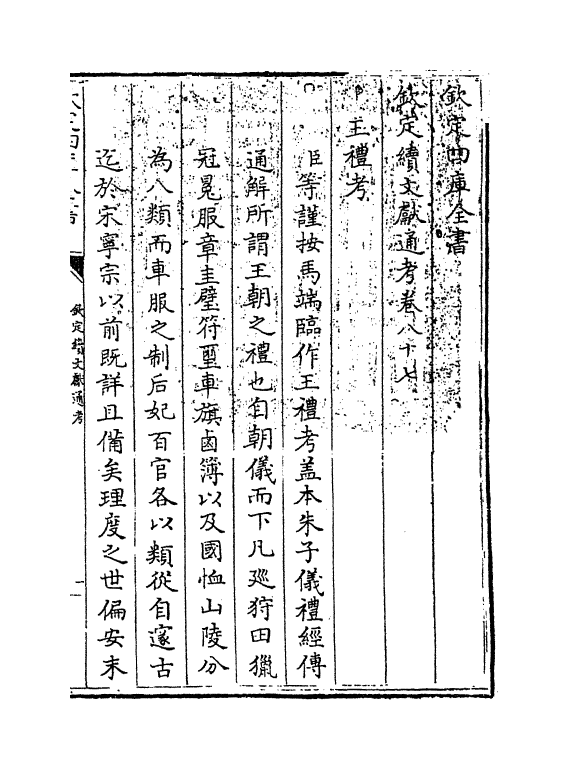 欽定四庫全書
欽定續文獻通考卷八十七
王禮考
臣等謹按馬端臨作王禮考盖本朱子儀禮經傳
通解所謂王朝之禮也自朝儀而下凡廵狩田獵
冠冕服章圭璧符璽車旗鹵簿以及國恤山陵分
為八類而車服之制后妃百官各以類從自邃古
迄於宋寧宗以前既詳且備矣理度之世偏安末
欽定四庫全書
欽定續文獻通考
一